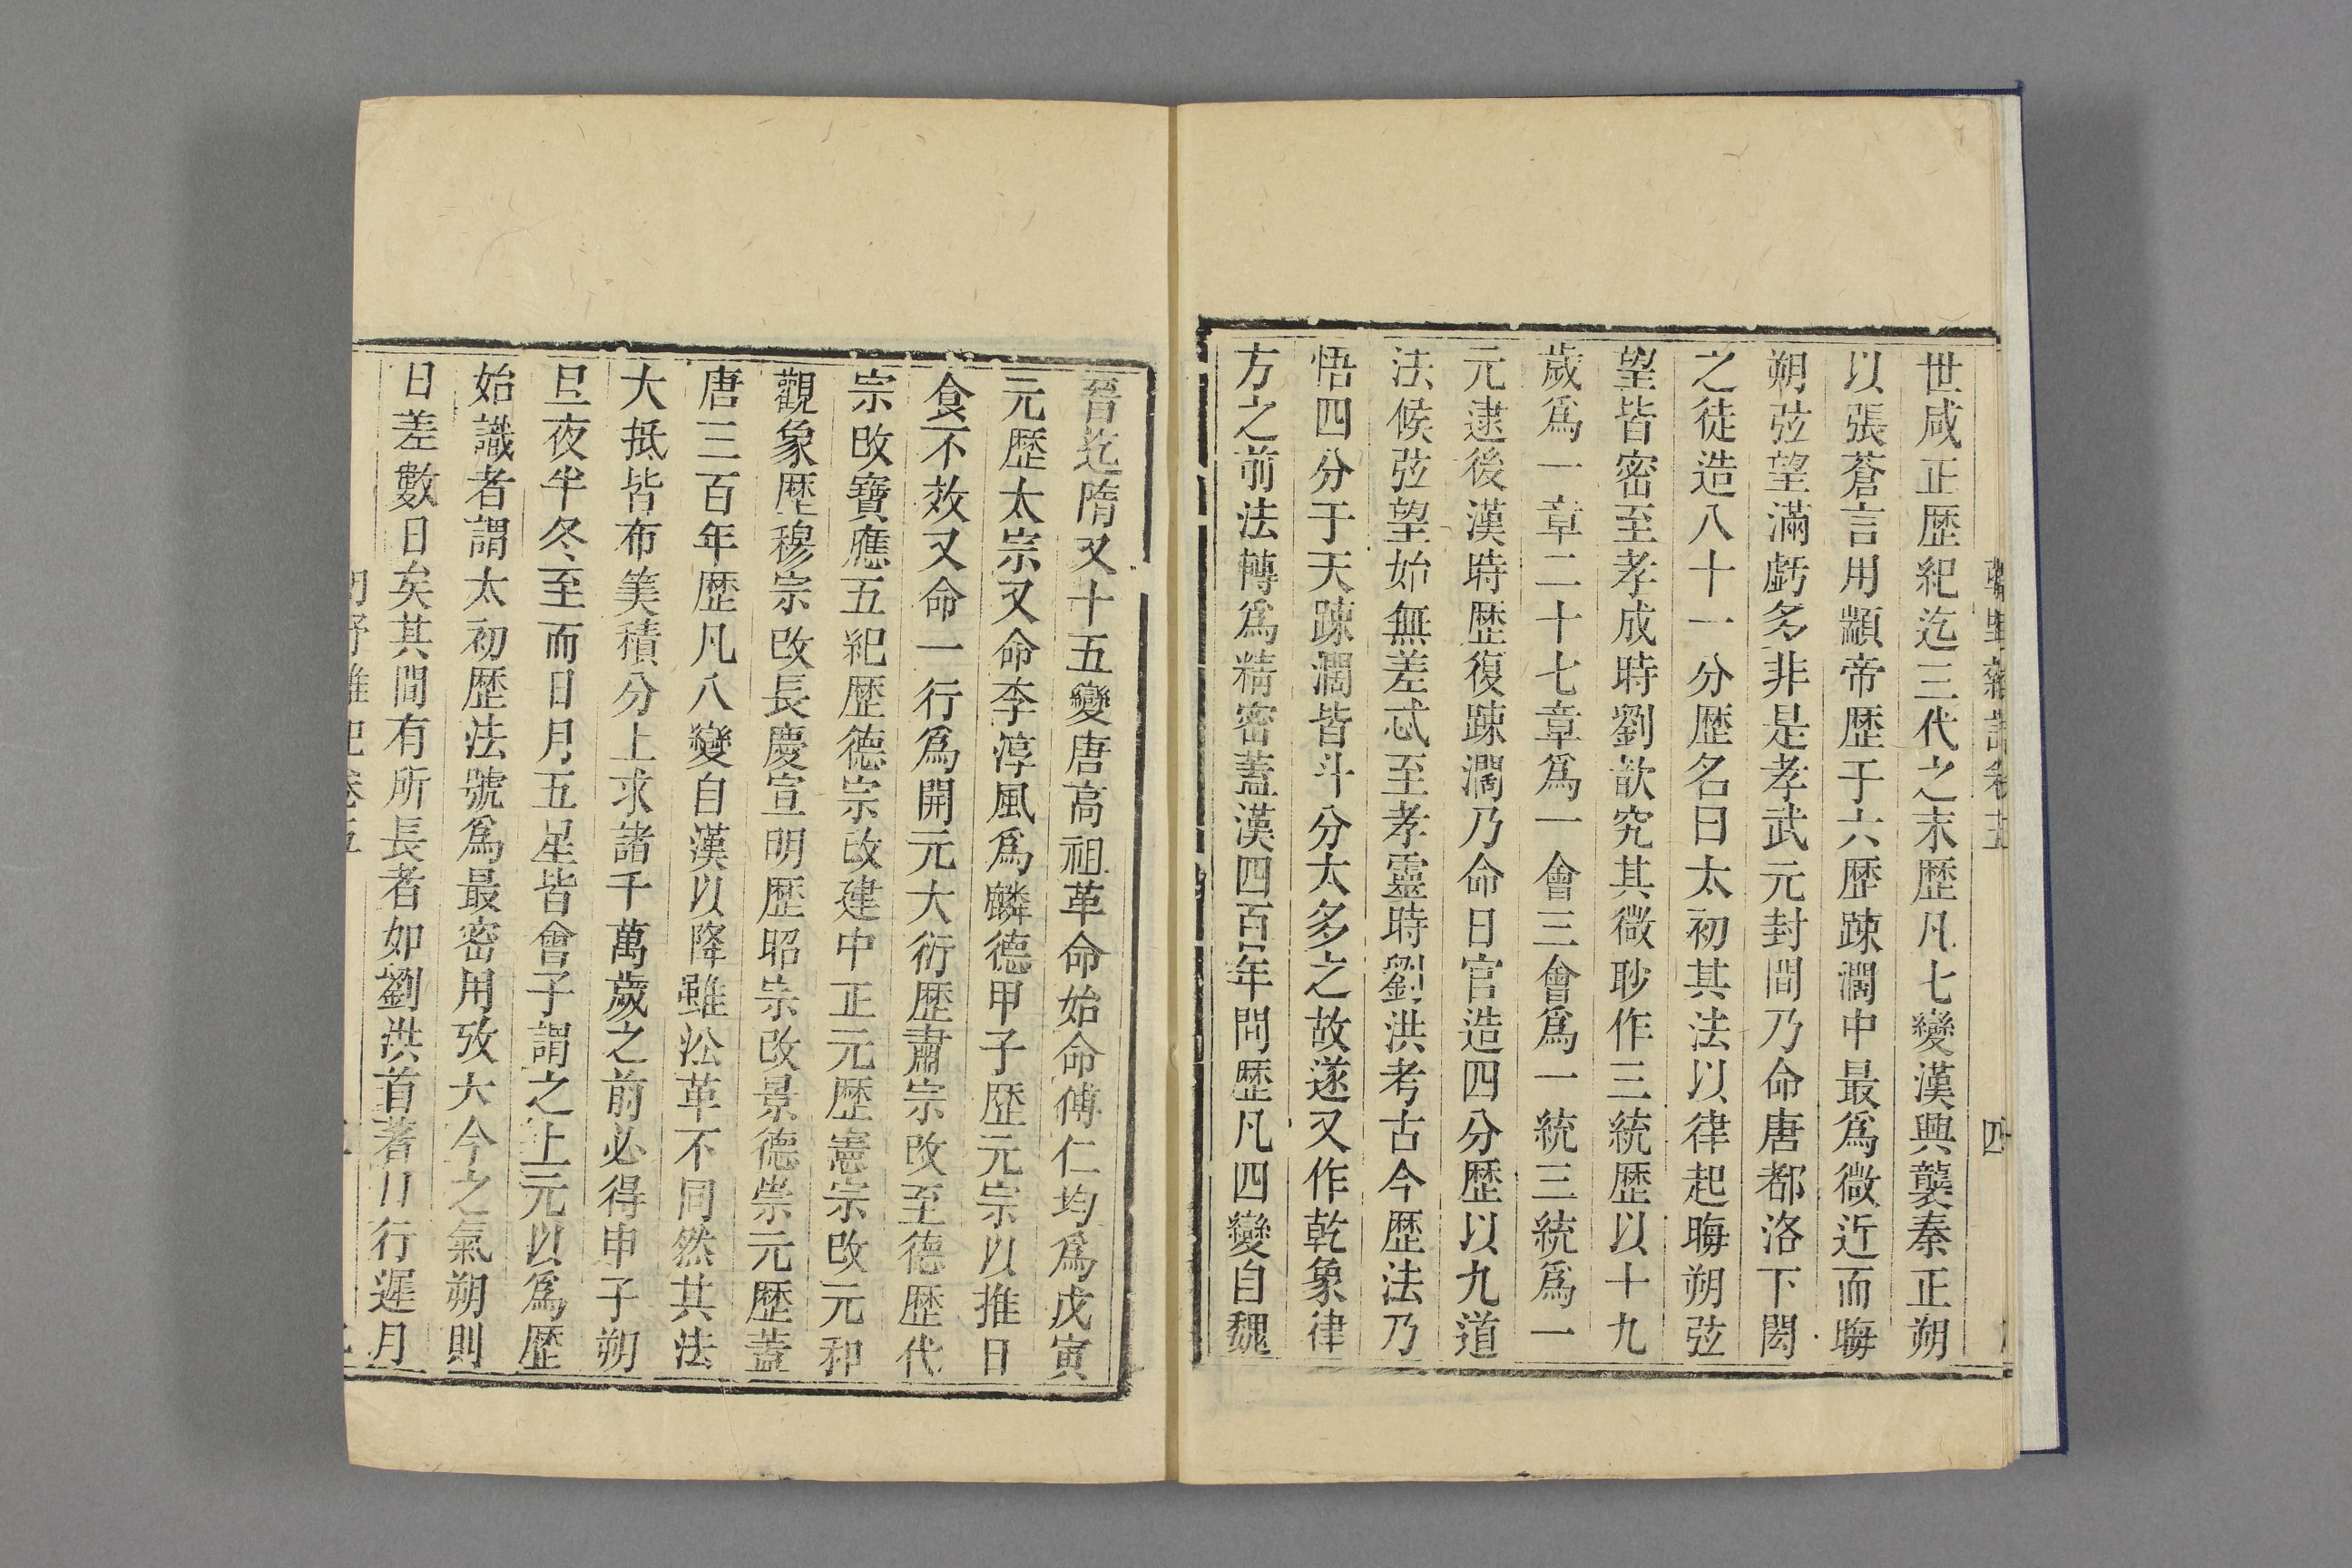 世咸正歷紀迄三代之末歷凡七變漢興襲秦正朔
以張蒼言用顓帝歷于六歷踈濶中最爲微近而晦
朔弦望滿虧多非是孝武元封間乃命唐都洛下閎
之徒造八十一分歷名曰太初其法以律起晦朔弦
望皆密至孝成時劉歆究其微眇作三統歷以十九
歲爲一章二十七章爲一會三會爲一統三統爲一
元逮後漢時歷復踈濶乃命日官造四分歷以九道
法候弦望始無差忒至孝靈時劉洪考古今歷法乃
悟四分于天踈濶皆斗分太多之故遂又作乾象律
方之前法轉爲精密蓋漢四百年間歷凡四變自魏
晉迄隋又十五變唐高祖革命始命傅仁均爲戊寅
元歷太宗又命李淳風爲麟德甲子歷元宗以推日
食不效又命一行爲開元大衍歷肅宗改至德歷代
宗改寶應五紀歷德宗改建中正元歷憲宗改元和
觀象歷穆宗改長慶宣明歷昭宗改景德崇元歷蓋
唐三百年歷凡八變自漢以降雖㳂革不同然其法
大抵皆布筭積分上求諸千萬歲之前必得甲子朔
旦夜半冬至而日月五星皆會子謂之上元以爲歷
始識者謂太初歷法號爲最密用攷大今之氣朔則
日差數日矣其間有所長者如劉洪首著日行遲月